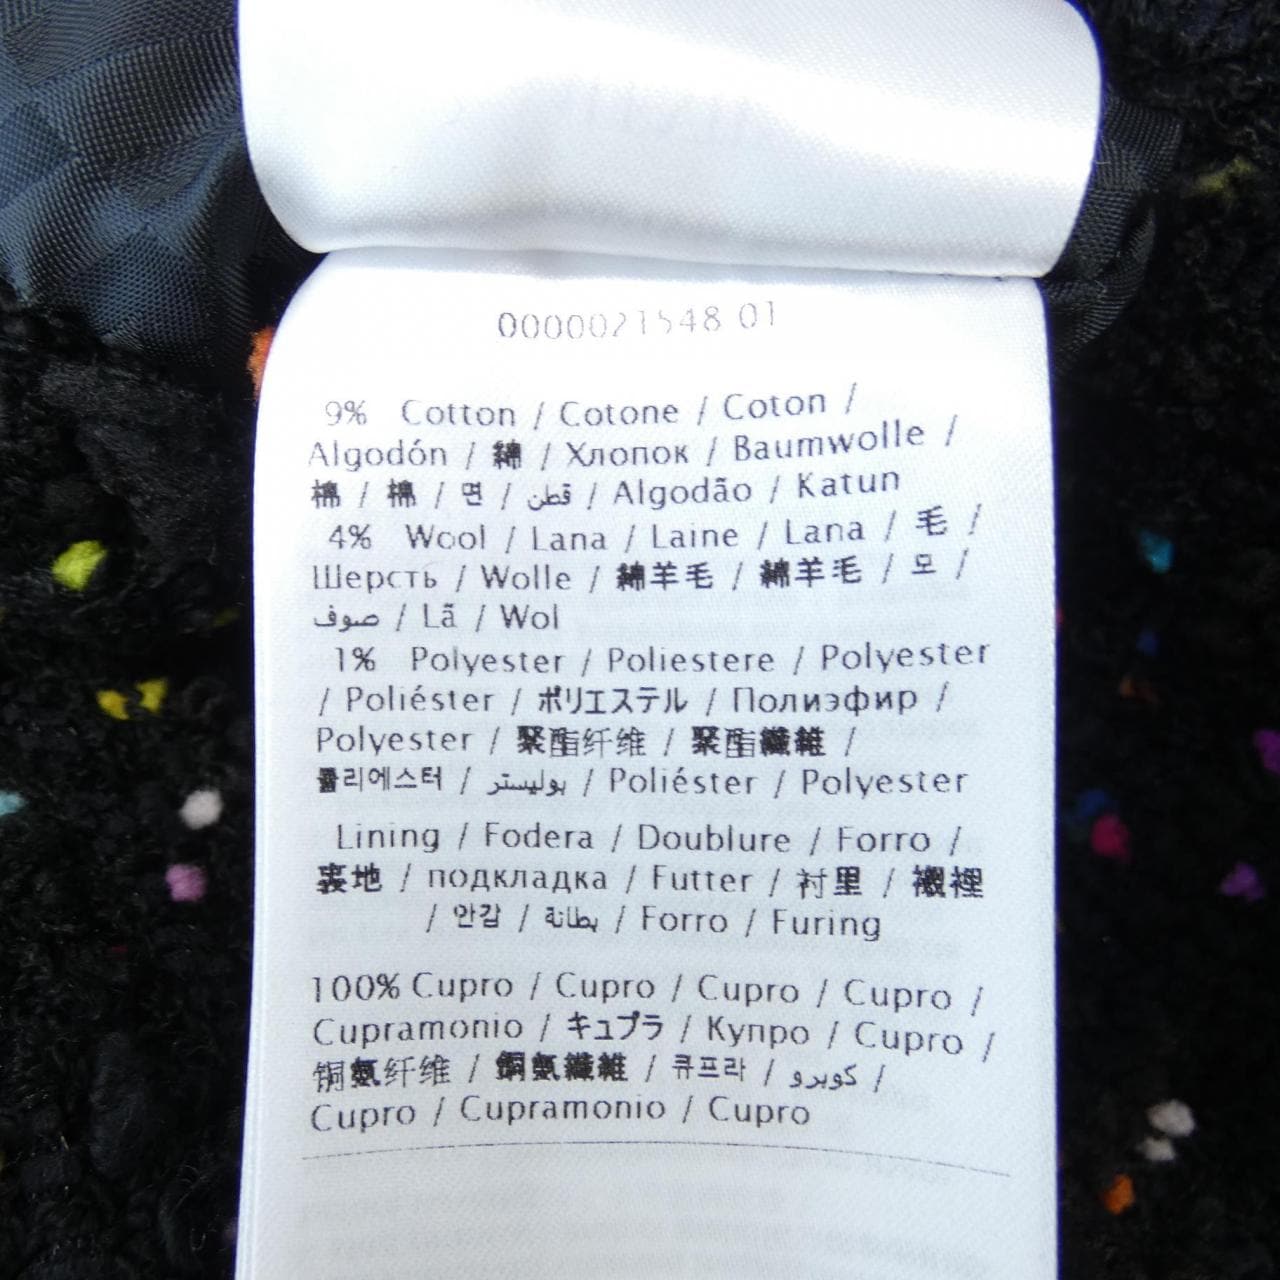 0000021548 01
9% Cotton / Cotone / Coton /
Algodón / 綿 / Хлопок / Baumwolle /
棉 / 棉 / 면 / قطن / Algodão / Katun
4% Wool / Lana / Laine / Lana / 毛 /
Шерсть / Wolle / 綿羊毛 / 綿羊毛 / 모 /
صوف / Lã / Wol
1% Polyester / Poliestere / Polyester
/ Poliéster / ポリエステル / Полиэфир /
Polyester / 聚酯纤维 / 聚酯纖維 /
폴리에스터 / بوليستر / Poliéster / Polyester
Lining / Fodera / Doublure / Forro /
裏地 / подкладка / Futter / 衬里 / 襯裡
/ 안감 / بطانة / Forro / Furing
100% Cupro / Cupro / Cupro / Cupro /
Cupramonio / キュプラ / Купро / Cupro /
铜氨纤维 / 銅氨纖維 / 큐프라 / كوبرو /
Cupro / Cupramonio / Cupro